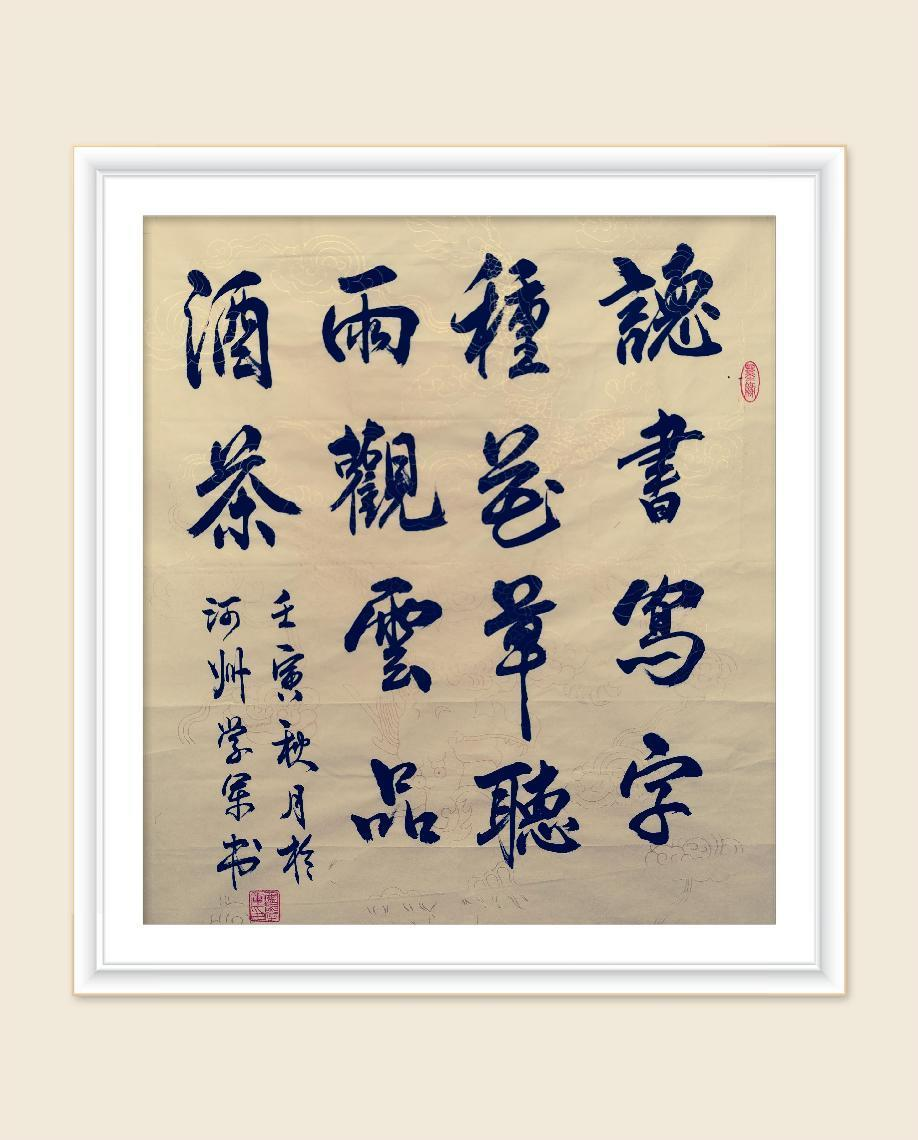 讀書寫字
種花草聽
雨觀雲品
酒茶
壬寅秋月於
河州学军书